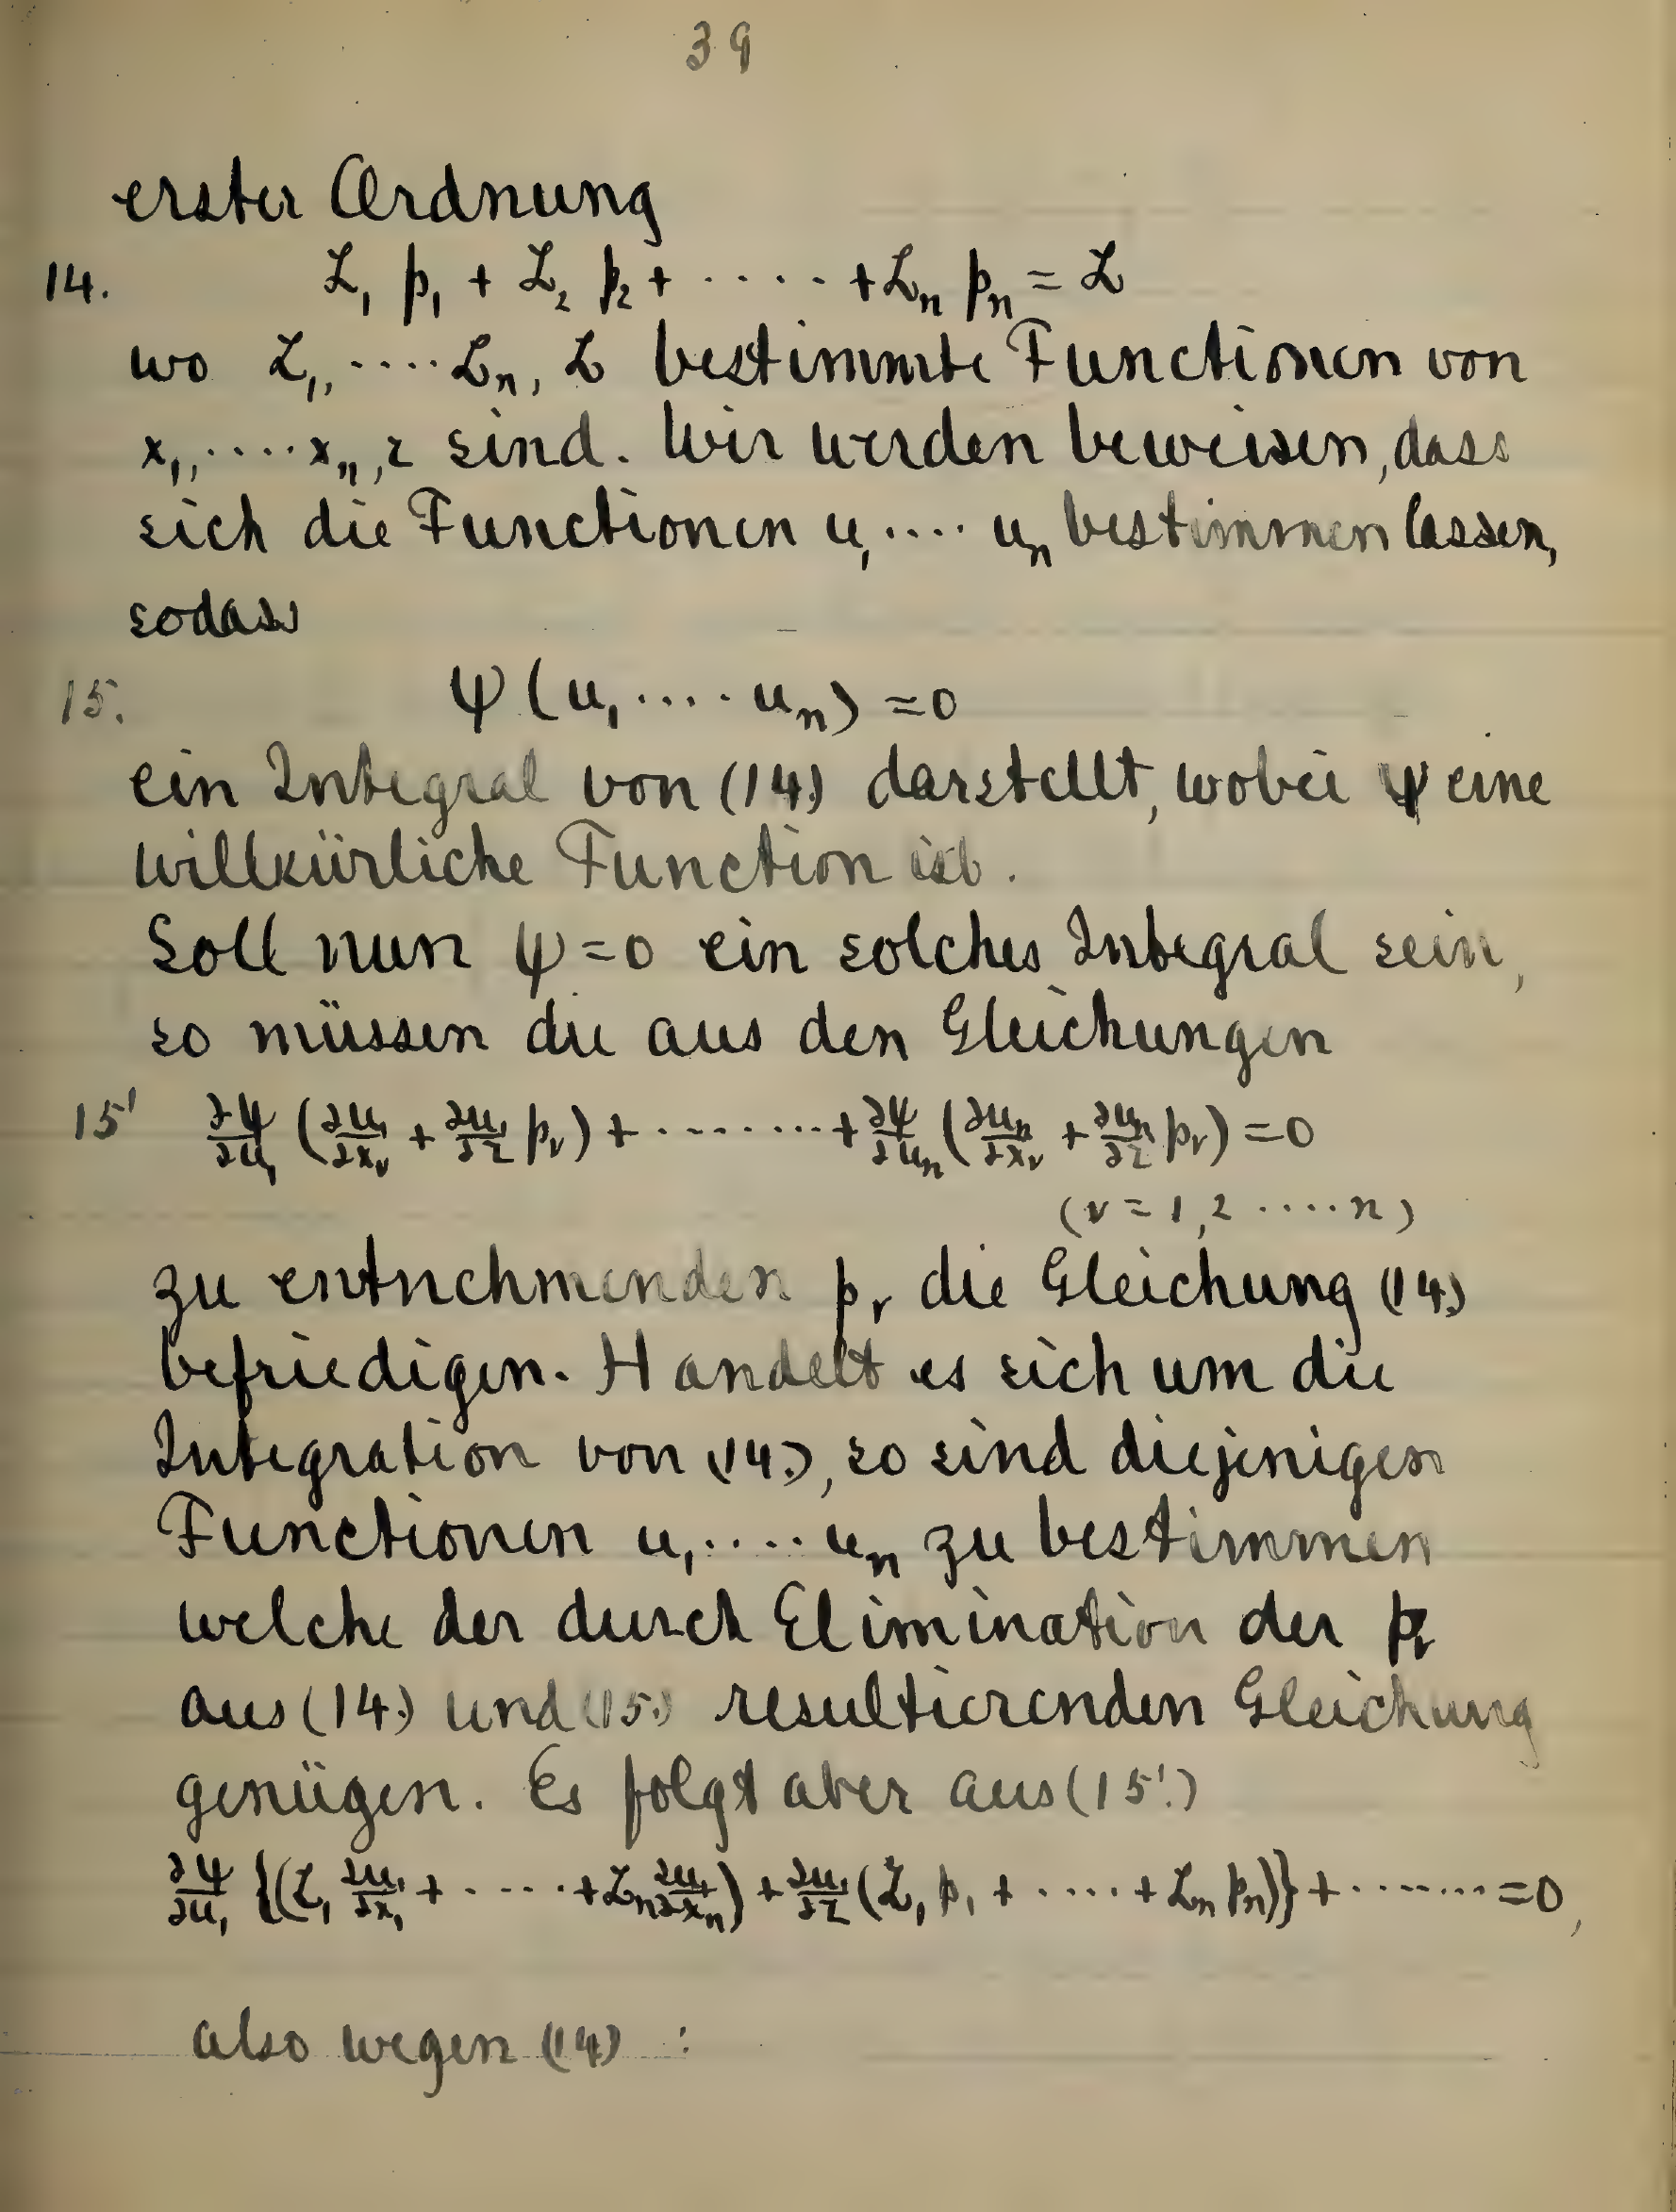 39
erster Ordnung
14. Z₁ p₁ + Z₂ p₂ + ..... + Zₙ pₙ = Z
wo Z₁, .... Zₙ, Z bestimmte Functionen von
x₁, .... xₙ, z sind. Wir werden beweisen, dass
sich die Functionen u₁ .... uₙ bestimmen lassen,
sodass
15. ψ (u₁ .... uₙ) = 0
ein Integral von (14.) darstellt, wobei ψ eine
willkürliche Function ist.
Soll nun ψ = 0 ein solches Integral sein,
so müssen die aus den Gleichungen
15' ∂ψ/∂u₁ (∂u₁/∂x_ν + ∂u₁/∂z p_ν) + ........ + ∂ψ/∂uₙ (∂uₙ/∂x_ν + ∂uₙ/∂z p_ν) = 0
(ν = 1, 2 .... n)
zu entnehmenden p_ν die Gleichung (14.)
befriedigen. Handelt es sich um die
Integration von (14.), so sind diejenigen
Functionen u₁ .... uₙ zu bestimmen
welche der durch Elimination der p_ν
aus (14.) und (15.) resultierenden Gleichung
genügen. Es folgt aber aus (15'.)
∂ψ/∂u₁ {(Z₁ ∂u₁/∂x₁ + ..... + Zₙ ∂u₁/∂xₙ) + ∂u₁/∂z (Z₁ p₁ + ..... + Zₙ pₙ)} + ....... = 0,
also wegen (14) :